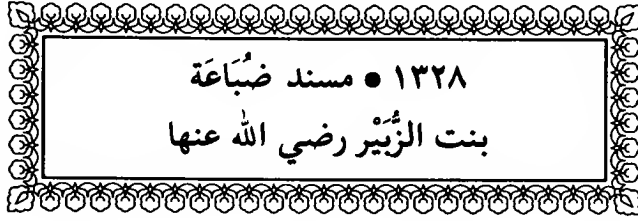 ١٣٢٨ ● مسند ضُبَاعَة
بنت الزُّبَيْر رضي الله عنها